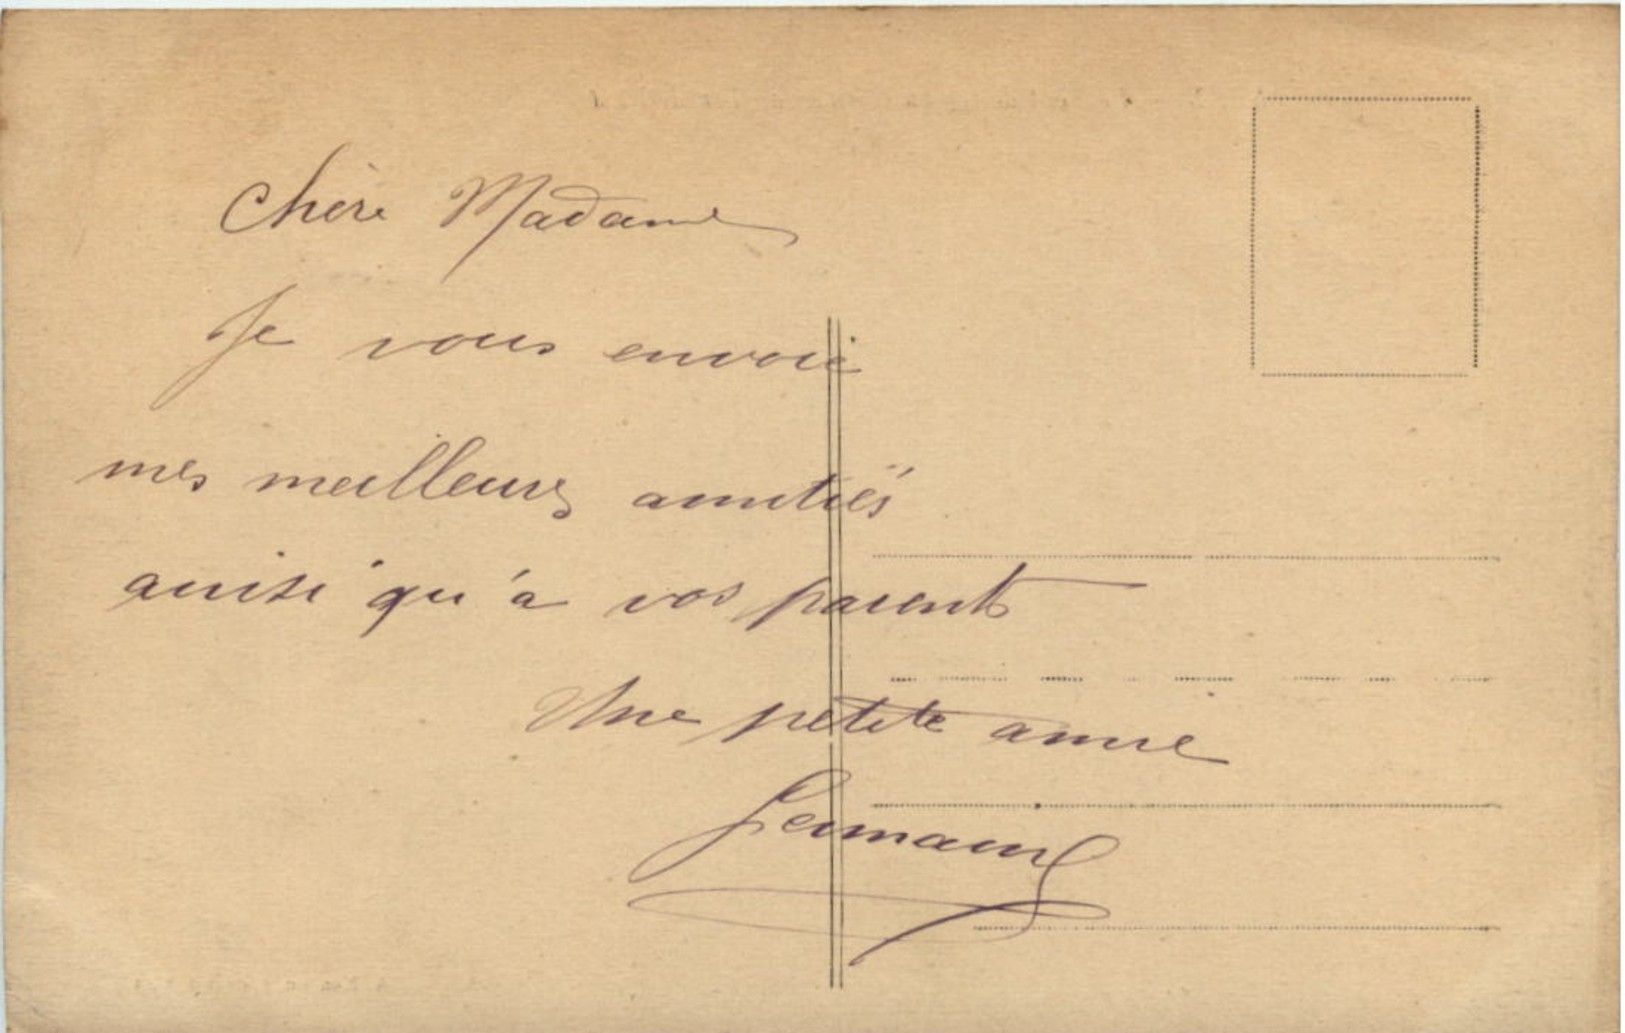 Chère Madame
Je vous envoie
mes meilleures amitiés
ainsi qu'à vos parents
Une petite amie
Germaine